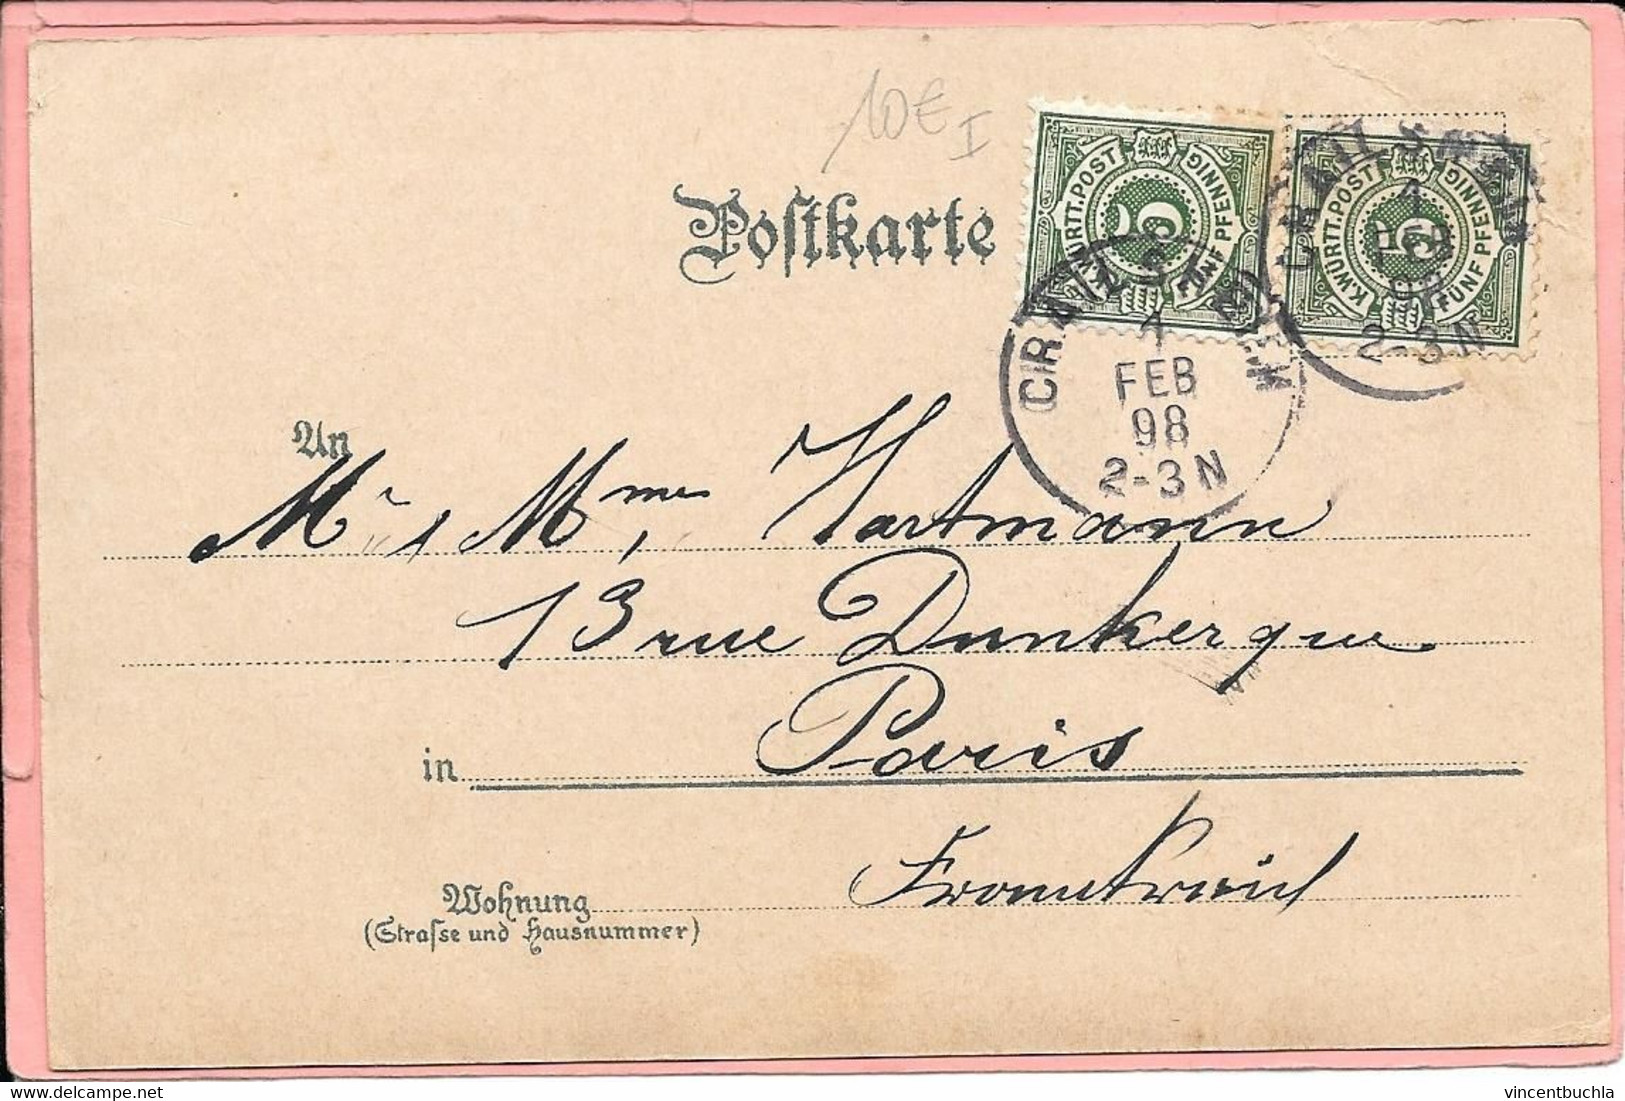 10€ I
Postkarte
K.WÜRTT.POST 5 FÜNF PFENNIG
K.WÜRTT.POST 5 FÜNF PFENNIG
CRAILSHEIM
4
FEB
98
2-3N
CRAILSHEIM
4
FEB
98
2-3N
An
Mr & Mme Hartmann
13 rue Dunkerque
in Paris
Frankreich
Wohnung
(Strasse und Hausnummer)
vincentbuchla